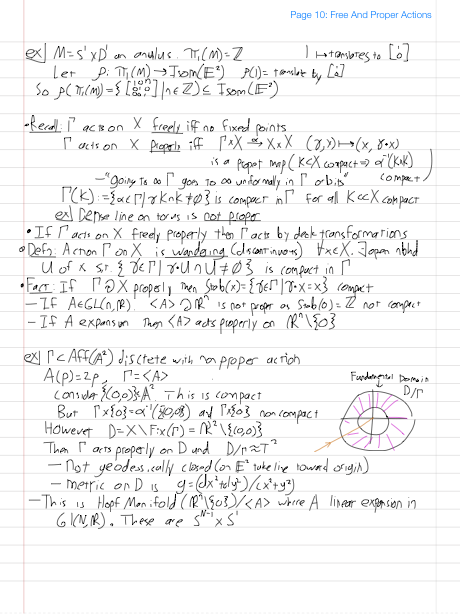 Page 10: Free And Proper Actions
ex| M = S¹ x D¹ an annulus. π₁(M) = ℤ 1 ↦ translates to [1 0]
Let ρ: π₁(M) → Isom(𝔼²) ρ(1) = translate by [1 0]
So ρ(π₁(M)) = { | n ∈ ℤ} ≤ Isom(𝔼²)
• Recall: Γ acts on X freely iff no fixed points
Γ acts on X properly iff Γ x X →α X x X (γ,x) ↦ (x, γ•x)
is a proper map (K ⊂ X compact ⇒ α⁻¹(KxK) compact)
- "going to ∞ Γ goes to ∞ uniformally in Γ orbits"
Γ(K) := {γ ∈ Γ | γK ∩ K ≠ ∅} is compact in Γ for all K ⊂ X compact
ex| Dense line on torus is not proper
• If Γ acts on X freely properly then Γ acts by deck transformations
• Defn: Action Γ on X is wandering (discontinuous) ∀x∈X, ∃ open nbhd
U of x s.t. {γ ∈ Γ | γ•U ∩ U ≠ ∅} is compact in Γ
• Fact: If Γ ↻ X properly then Stab(x) = {γ∈Γ | γ•x = x} compact
- If A∈GL(n,ℝ) <A> ↻ ℝⁿ is not proper as Stab(0) = ℤ not compact
- If A expansion then <A> acts properly on ℝⁿ\{0}
ex| Γ ⊂ Aff(𝔸²) discrete with non proper action
A(p) = 2p, Γ = <A>
Consider {(0,0)} 𝔸². This is compact
But Γ x {0} = α⁻¹({0,0}) and Γ x {0} non compact
However D = X \ Fix(Γ) = ℝ² \ {(0,0)}
Then Γ acts properly on D and D/Γ ≈ T²
- Not geodesically closed (on 𝔼² take line toward origin)
- metric on D is g = (dx²+dy²)/(x²+y²)
- This is Hopf Manifold (ℝⁿ\{0})/<A> where A linear expansion in
Gl(N,ℝ). These are Sᴺ⁻¹ x S¹
Fundamental Domain
D/Γ